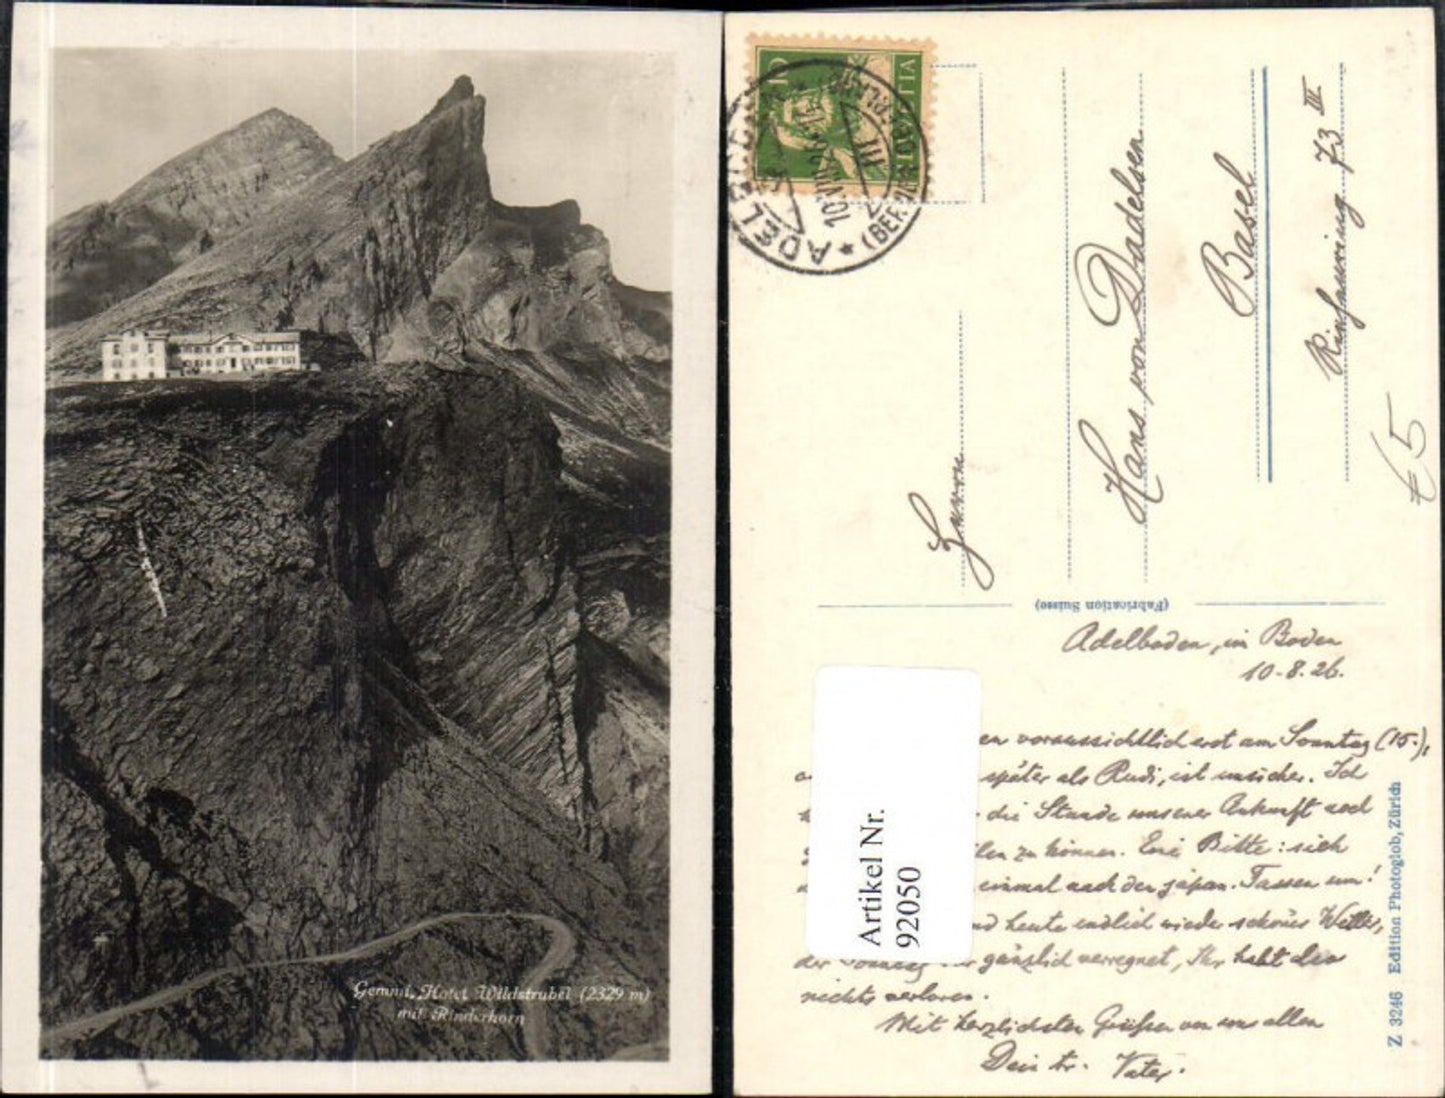 Gemmi, Hotel Wildstrubel (2329 m)
mit Rinderhorn
HELVETIA
ADELBODEN
(BERN)
10.VIII.26
Herrn
Hans von Dadelsen
Basel
73 III
€ 5
(Fabrication Suisse)
Adelboden, im Boden
10.8.26.
en voraussichtlich erst am Sonntag (15.),
später als Rudi, ist unsicher. Ich
die Stunde unserer Ankunft noch
len zu können. Eine Bitte: sieh
einmal nach den japan. Tassen um!
nd heute endlich wieder schönes Wetter,
der Sonntag war gänzlich verregnet, Ihr habt also
nichts verloren.
Mit herzlichsten Grüßen von uns allen
Dein tr. Vater.
Artikel Nr.
92050
Z 3246 Edition Photoglob, Zürich